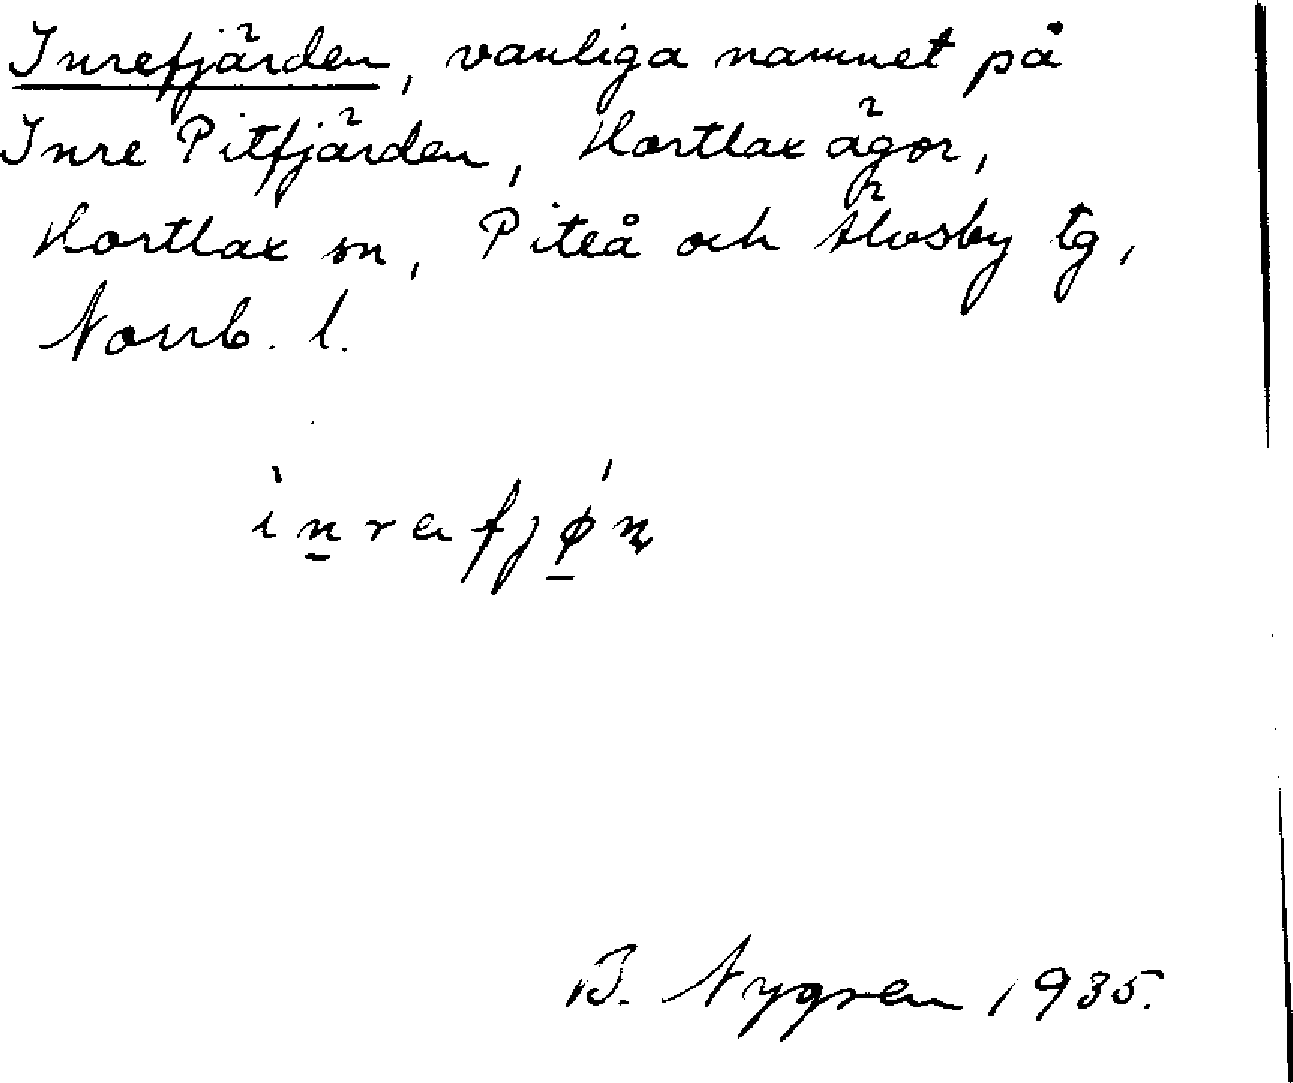 Inrefjärden, vanliga namnet på
Inre Pitfjärden, Hortlax ägor,
Hortlax sn, Piteå och Älvsby tg,
Norrb. l.
ìn̲rafjǿ̲ɳ
B. Nygren 1935.